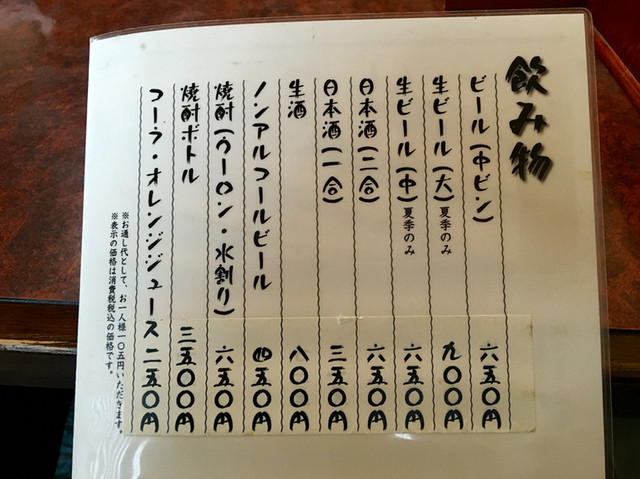 飲み物
ビール(中ビン) 六五〇円
生ビール(大)夏季のみ 九〇〇円
生ビール(中)夏季のみ 六五〇円
日本酒(二合) 六五〇円
日本酒(一合) 三五〇円
生酒 八〇〇円
ノンアルコールビール 四五〇円
焼酎(ウーロン・水割り) 六五〇円
焼酎ボトル 三五〇〇円
コーラ・オレンジジュース 二五〇円
※お通し代として、お一人様一〇五円いただきます。
※表示の価格は消費税税込の価格です。